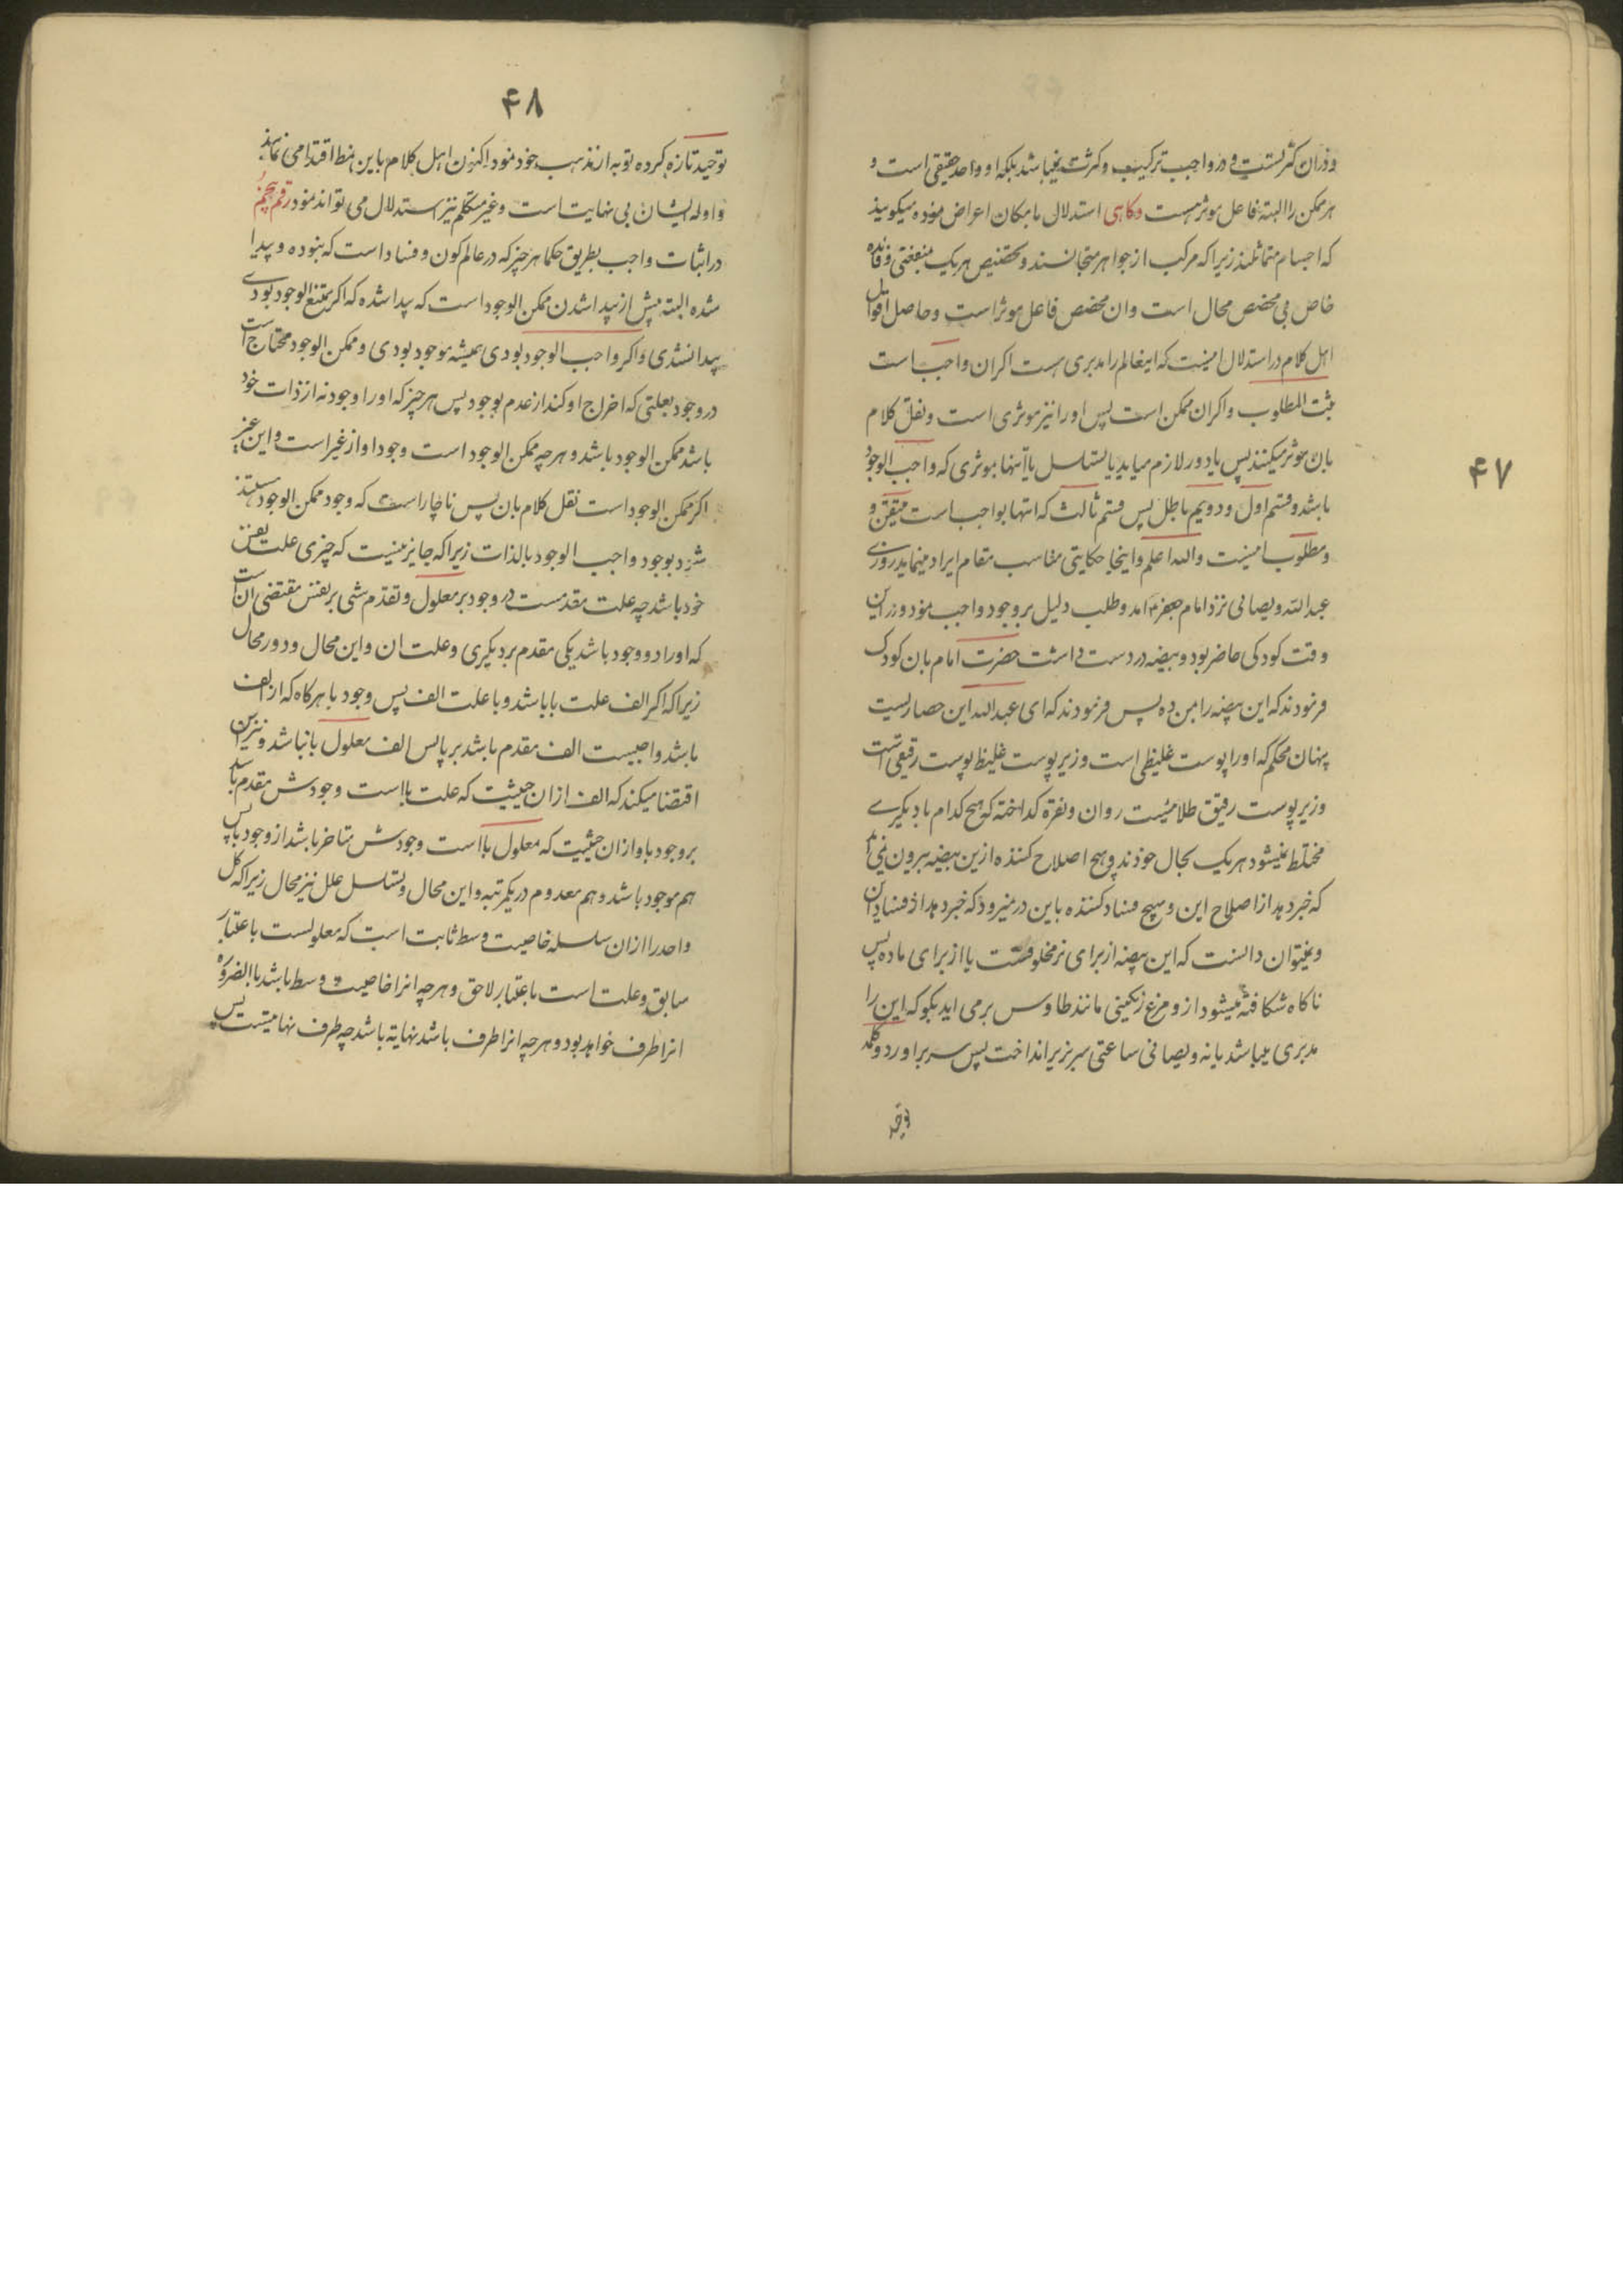 ۴۷
و دران کثرتست و در واجب ترکیب و کثرت نمیباشد بلکه او واحد حقیقی است و
هر ممکن را البته فاعل موثر هست و کاهی استدلال بامکان اعراض نموده میکویند
که اجسام متماثلند زیرا که مرکب از جواهر متجانسند و تخصیص هر یک بمنفعتی و فائده
خاص بی مخصص محال است و ان مخصص فاعل موثر است و حاصل اقوال
اهل کلام در استدلال اینست که اینعالم را مدبری هست اکر ان واجب است
ثبت المطلوب و اکر ان ممکن است پس او را نیز موثری است و نقل کلام
بان موثر میکنند پس یا دور لازم میاید یا تسلسل یا انتها بموثری که واجب الوجود
باشد و قسم اول و دویم باطل پس قسم ثالث که انتها بواجب است متیقن و
و مطلوب اینست والله اعلم و اینجا حکایتی مناسب مقام ایراد مینماید روزی
عبد الله ویصانی نزد امام جعفر امد و طلب دلیل بر وجود واجب نمود و در این
وقت کودکی حاضر بود و بیضه در دست داشت حضرت امام بان کودک
فرمودند که این بیضه را بمن ده پس فرمودند که ای عبد الله این حصاریست
پنهان محکم که او را پوست غلیظی است و زیر پوست غلیظ پوست رقیقی است
و زیر پوست رقیق طلائیست روان و نقره کداخته که هیچ کدام با دیکری
مختلط نمیشود هر یک بحال خودند و هیچ اصلاح کننده ازین بیضه بیرون نمی اید
که خبر دهد از اصلاح این و هیچ فساد کننده باین در نمیرود که خبر دهد از فساد ان
و نمیتوان دانست که این بیضه از برای نر مخلوقست یا از برای ماده پس
ناکاه شکافته میشود از و مرغ رنکینی مانند طاوس بر می اید بکو که این را
مدبری میباشد یا نه ویصانی ساعتی سر بزیر انداخت پس سر براورد و کلمه
توحید
۴۸
توحید تازه کرده توبه از مذهب خود نمود اکنون اهل کلام باین نمط اقتدا می نمایند
و اوله ایشان بی نهایت است و غیر متکلم نیز استدلال می تواند نمود رقم پنجم
در اثبات واجب بطریق حکما هر چیز که در عالم کون و فساد است که نبوده و پیدا
شده البته پیش از پیدا شدن ممکن الوجود است که پیدا شده که اکر ممتنع الوجود بودی
پیدا نشدی و اکر واجب الوجود بودی همیشه موجود بودی و ممکن الوجود محتاج است
در وجود بعلتی که اخراج او کند از عدم بوجود پس هر چیز که او را وجود نه از ذات خود
باشد ممکن الوجود باشد و هر چه ممکن الوجود است وجود او از غیر است و این غیر
اکر ممکن الوجود است نقل کلام بان پس ناچار است که وجود ممکن الوجود مستند
شود بوجود واجب الوجود بالذات زیرا که جایز نیست که چیزی علت نفس
خود باشد چه علت مقدمست در وجود بر معلول و تقدم شی بر نفس مقتضی ان است
که او را دو وجود باشد یکی مقدم بر دیکری و علت ان و این محال و دور محال
زیرا که اکر الف علت با باشد و با علت الف پس وجود با هر کاه که از الف
باشد واجبست الف مقدم باشد بر با پس الف معلول با نباشد و نیز این
اقتضا میکند که الف از ان حیثیت که علت با است وجودش مقدم باشد
بر وجود با و از ان حیثیت که معلول با است وجودش متاخر باشد از وجود با پس
هم موجود باشد و هم معدوم در یکمرتبه و این محال و تسلسل علل نیز محال زیرا که کل
واحد را از ان سلسله خاصیت وسط ثابت است که معلولست باعتبار
سابق و علت است باعتبار لاحق و هر چه انرا خاصیت وسط باشد بالضروره
انرا طرف خواهد بود و هر چه انرا طرف باشد نهایة باشد چه طرف نهایتست پس